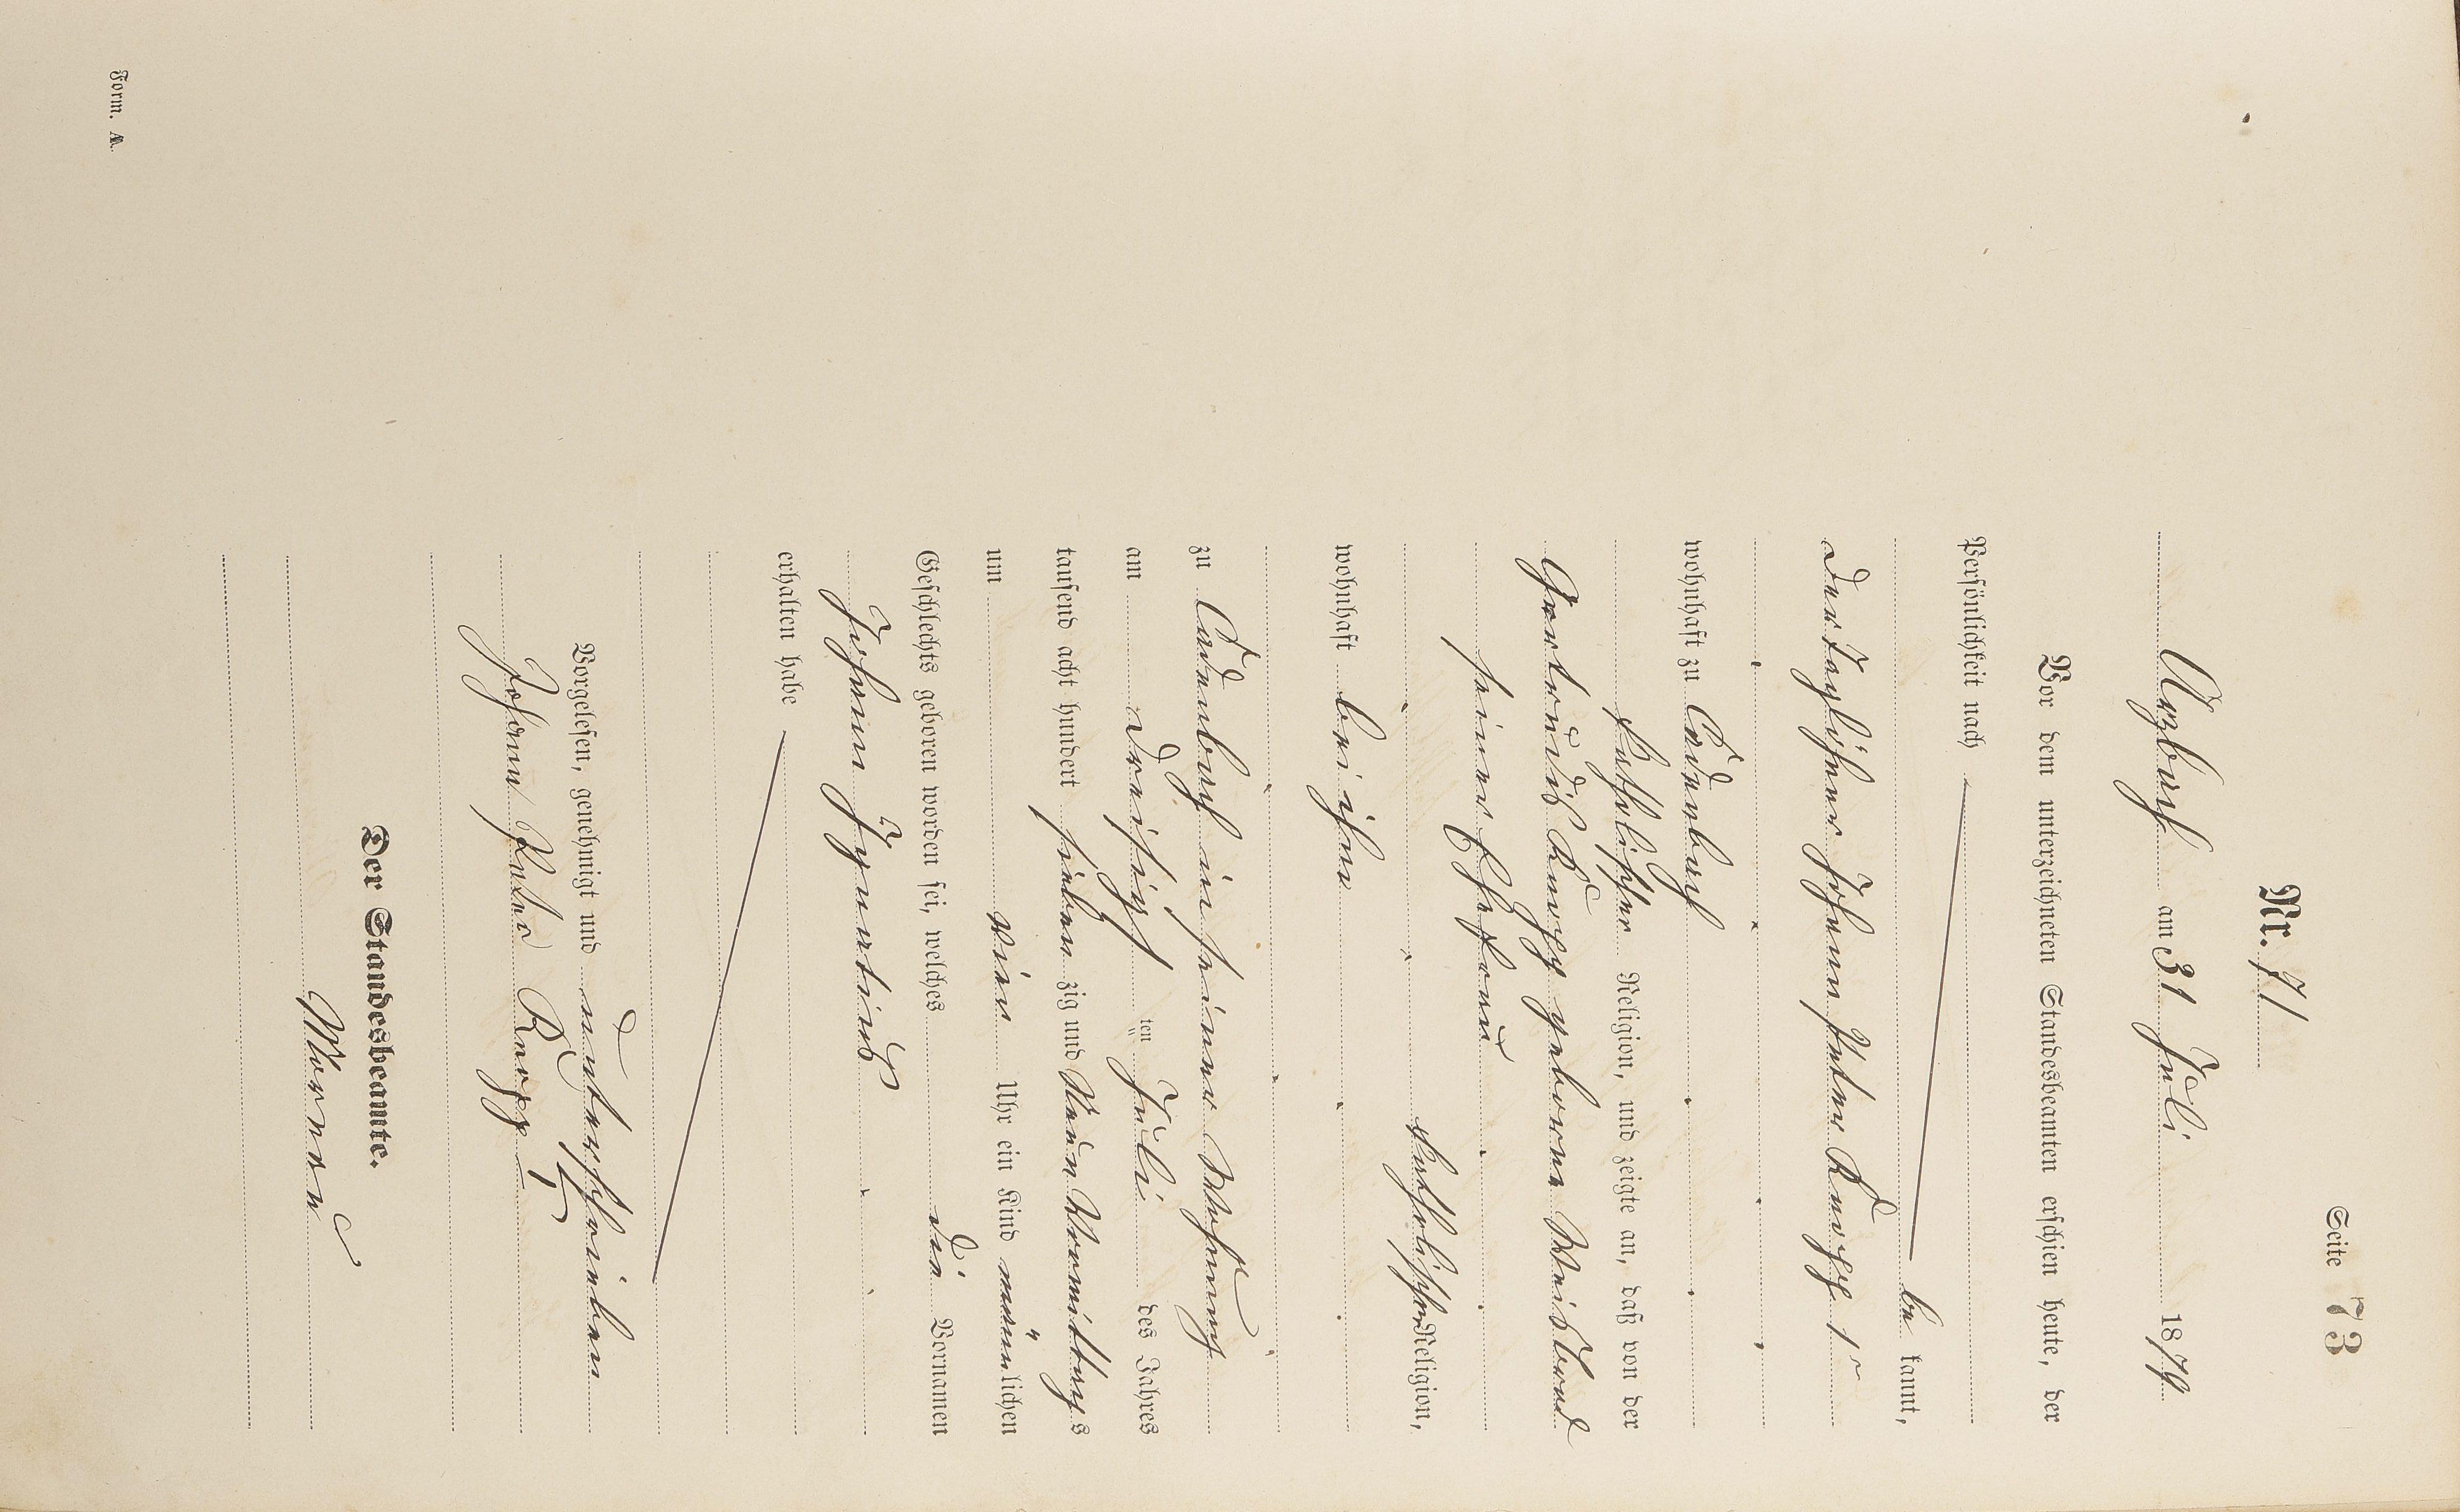 Seite 73
Nr. 71
Arzbach am 31 Juli 1879
Vor dem unterzeichneten Standesbeamten erschien heute, der
Persönlichkeit nach
be kannt,
der Taglöhner Johann Peter Knopp 1r
wohnhaft zu Cadenbach
katholischer Religion, und zeigte an, daß von der
Gertraudis Knopp geborene Weisbrod
seiner Ehefrau
katholischer Religion,
wohnhaft bei ihm
zu Cadenbach in seiner Wohnung
am dreisigst ten Juli des Jahres
tausend acht hundert sieben zig und Neun Vormittags
um vier Uhr ein Kind männ lichen
Geschlechts geboren worden sei, welches die Vornamen
Johann Ignatius
erhalten habe
Vorgelesen, genehmigt und unterschrieben
Johann Peter Knopp I
Der Standesbeamte.
Form. A.